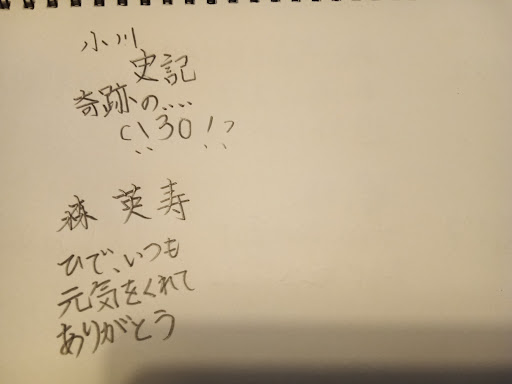 小川
史記
奇跡の....
C!30!?
森 英寿
ひで、いつも
元気をくれて
ありがとう